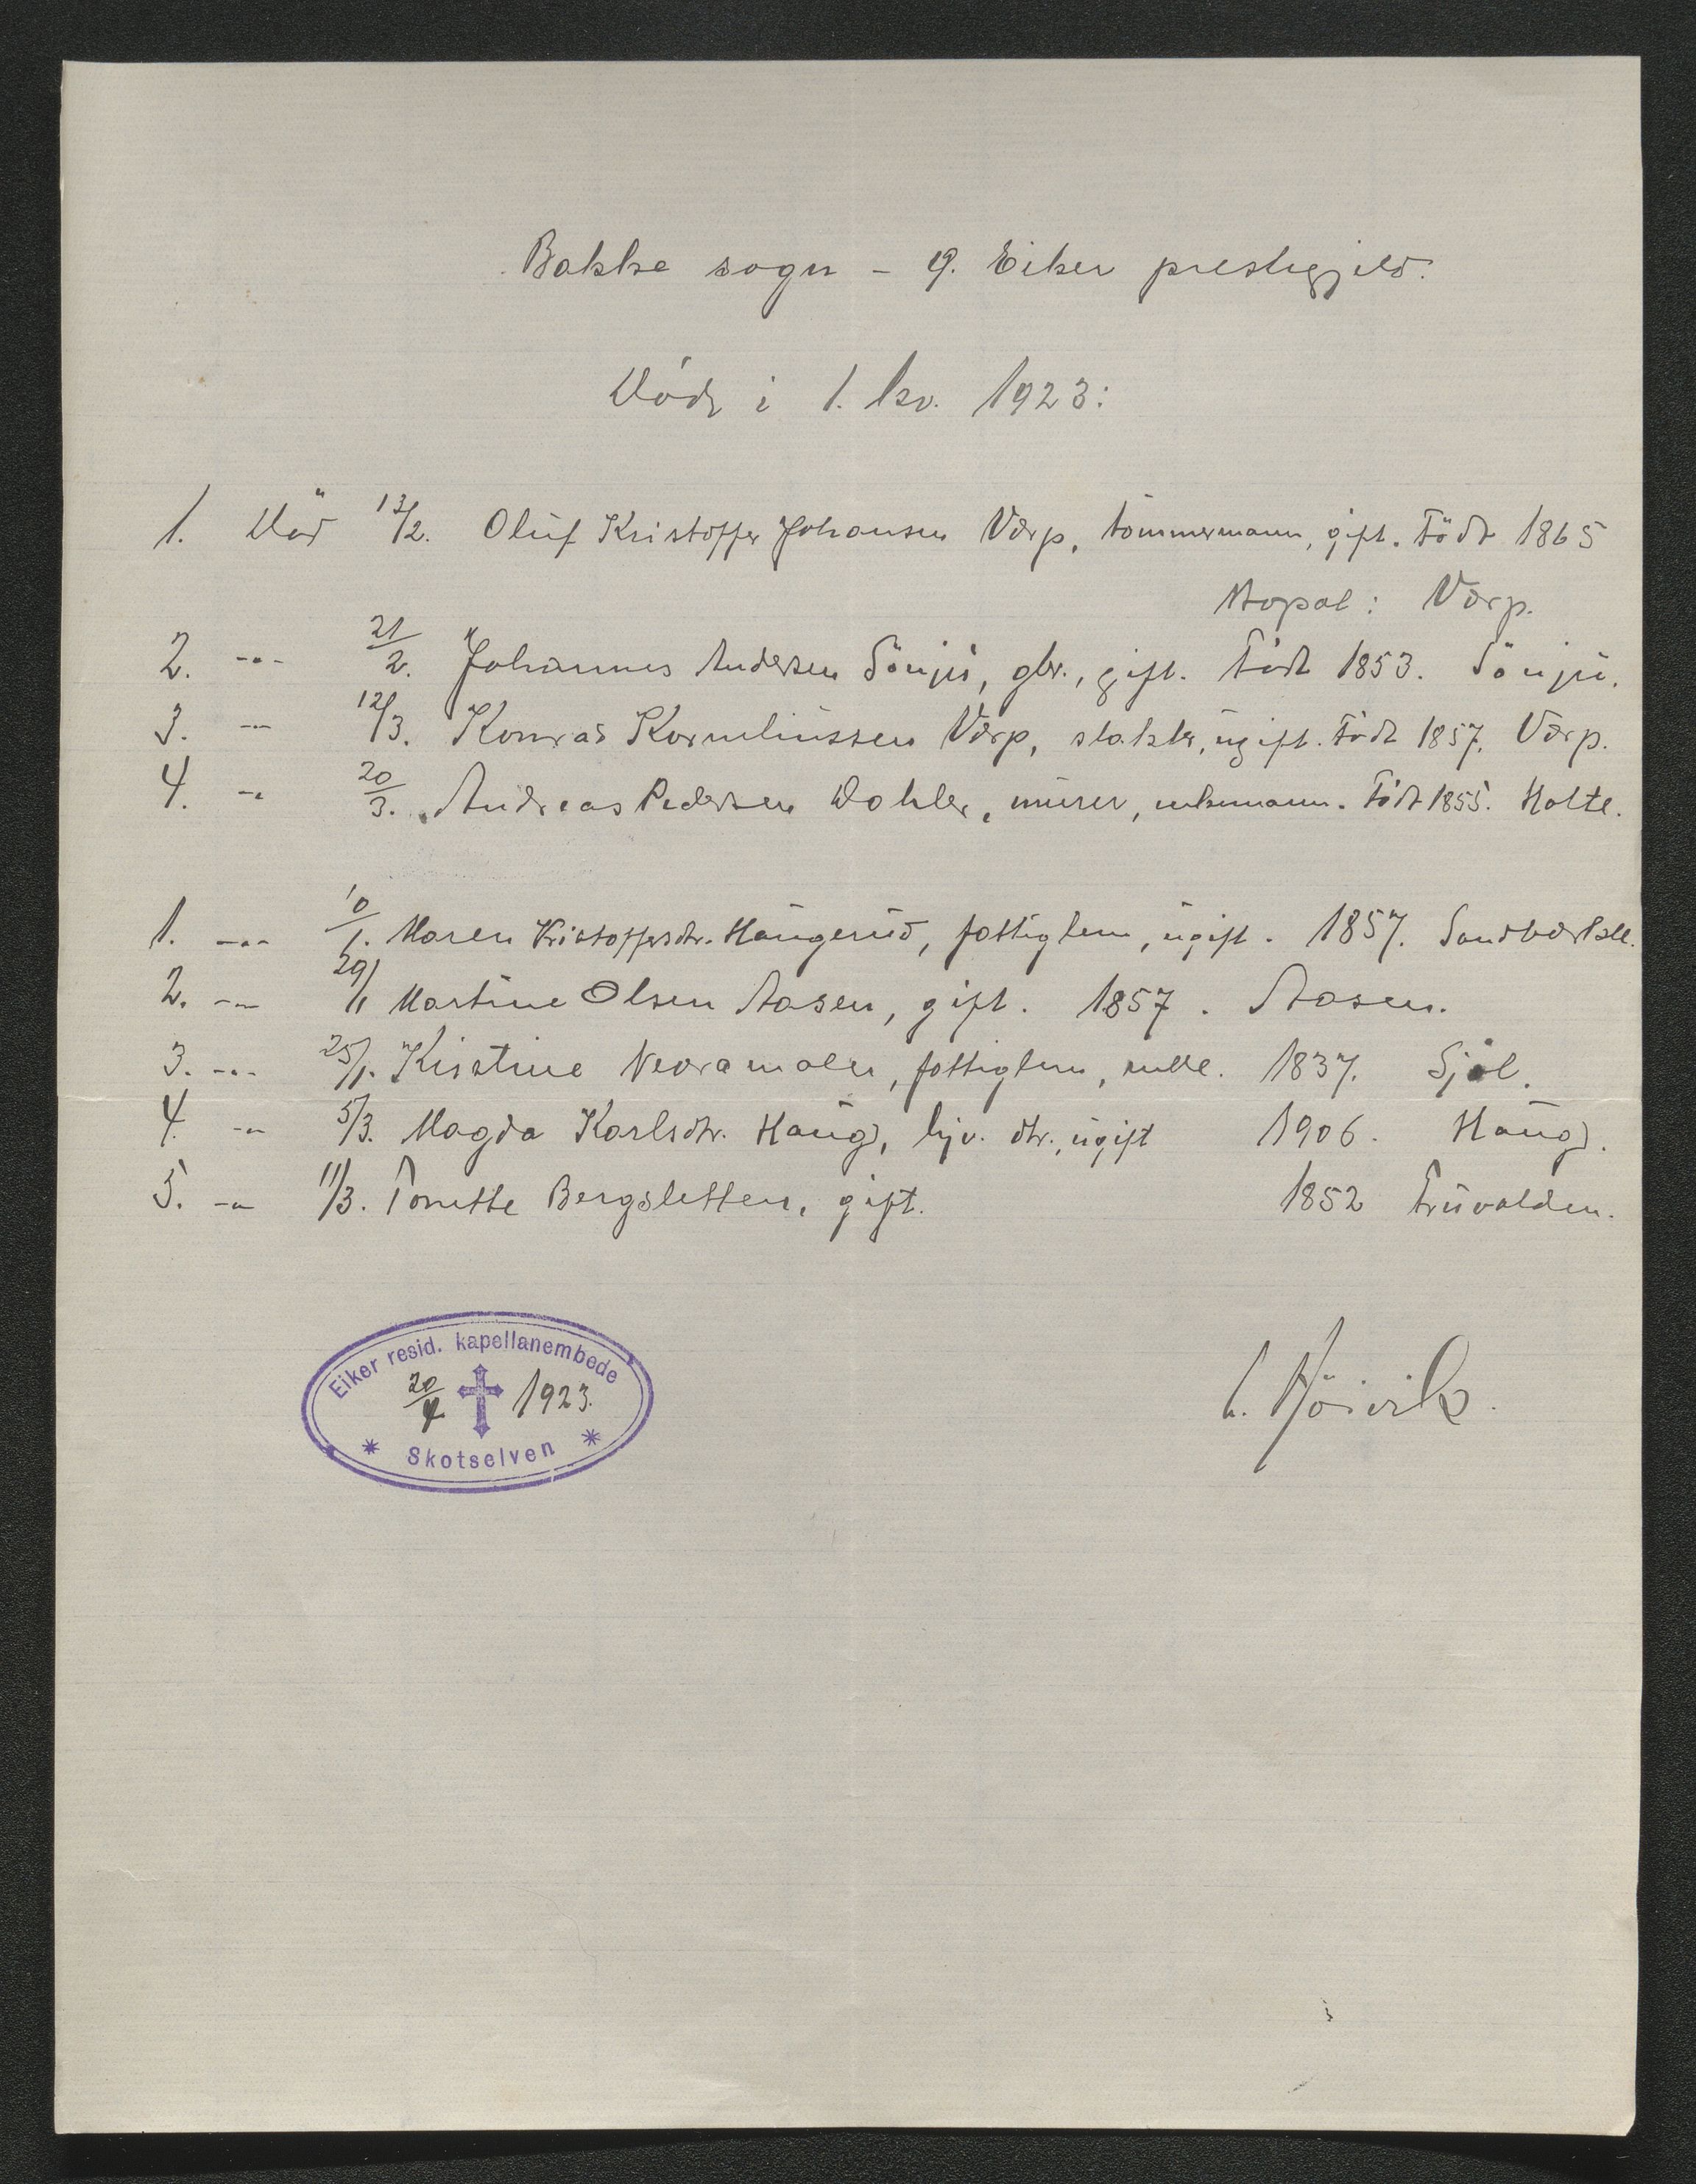 Bakke sogn - Ø. Eiker prestegjeld.
Døde i 1. kv. 1923:
1. Død 13/2. Oluf Kristoffer Johansen Varp, tømmermann, gift. Født 1865
Aopal: Varp.
2. -"- 21/2. Johannes Andersen Sönju, gbr., gift. Født 1853. Sönju.
3. -"- 12/3. Konrad Korneliussen Varp, slakter, ugift. Født 1857. Varp.
4. -"- 20/3. Andreas Pedersen Dahler, murer, enkemann. Født 1855. Holte.
1. -"- 10/1. Maren Kristoffersdtr. Haugerud, fattiglem, ugift. 1857.
2. -"- 29/1 Martine Olsen Aasen, gift. 1857. Aasen.
3. -"- 25/1. Kistine Nedramalen, fattiglem, enke. 1837. Sjøl.
4. -"- 5/3. Magda Karlsdtr. Haug, hjv. dtr., ugift 1906. Haug.
5. -"- 11/3. Tonette Bergsletten, gift. 1852
Eiker resid. kapellanembede
20/4 1923.
Skotselven
Höivik.